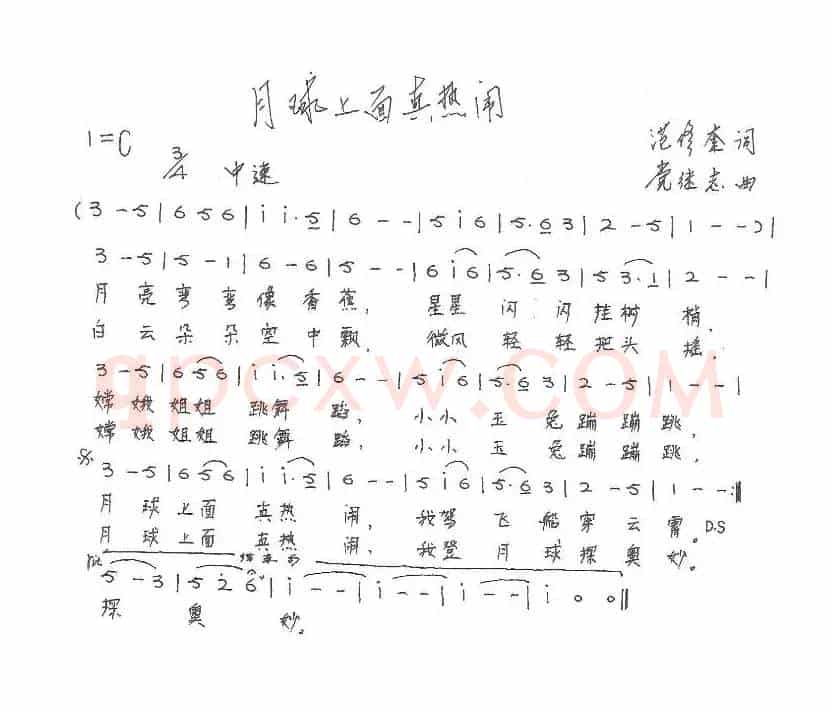 月球上面真热闹
1=C 3/4 中速
范修奎词
党继志曲
(3 - 5 | 6 5 6 | i i· 5 | 6 - - | 5 i 6 | 5· 6 3 | 2 - 5 | 1 - -) |
3 - 5 | 5 - 1 | 6 - 6 | 5 - - | 6 i 6 | 5· 6 3 | 5 3· 1 | 2 - - |
月亮弯弯像香蕉，星星闪闪挂树梢，
白云朵朵空中飘，微风轻轻把头摇，
3 - 5 | 6 5 6 | i i· 5 | 6 - - | 5 i 6 | 5· 6 3 | 2 - 5 | 1 - - |
嫦娥姐姐跳舞蹈，小小玉兔蹦蹦跳，
嫦娥姐姐跳舞蹈，小小玉兔蹦蹦跳，
3 - 5 | 6 5 6 | i i· 5 | 6 - - | 5 i 6 | 5· 6 3 | 2 - 5 | 1 - - :||
月球上面真热闹，我驾飞船穿云霄。D.S
月球上面真热闹，我登月球探奥妙。
5 - 3 | 5 2 6 | i - - | i - - | i - - | i 0 0 ||
探奥妙。
qpcxw.COM